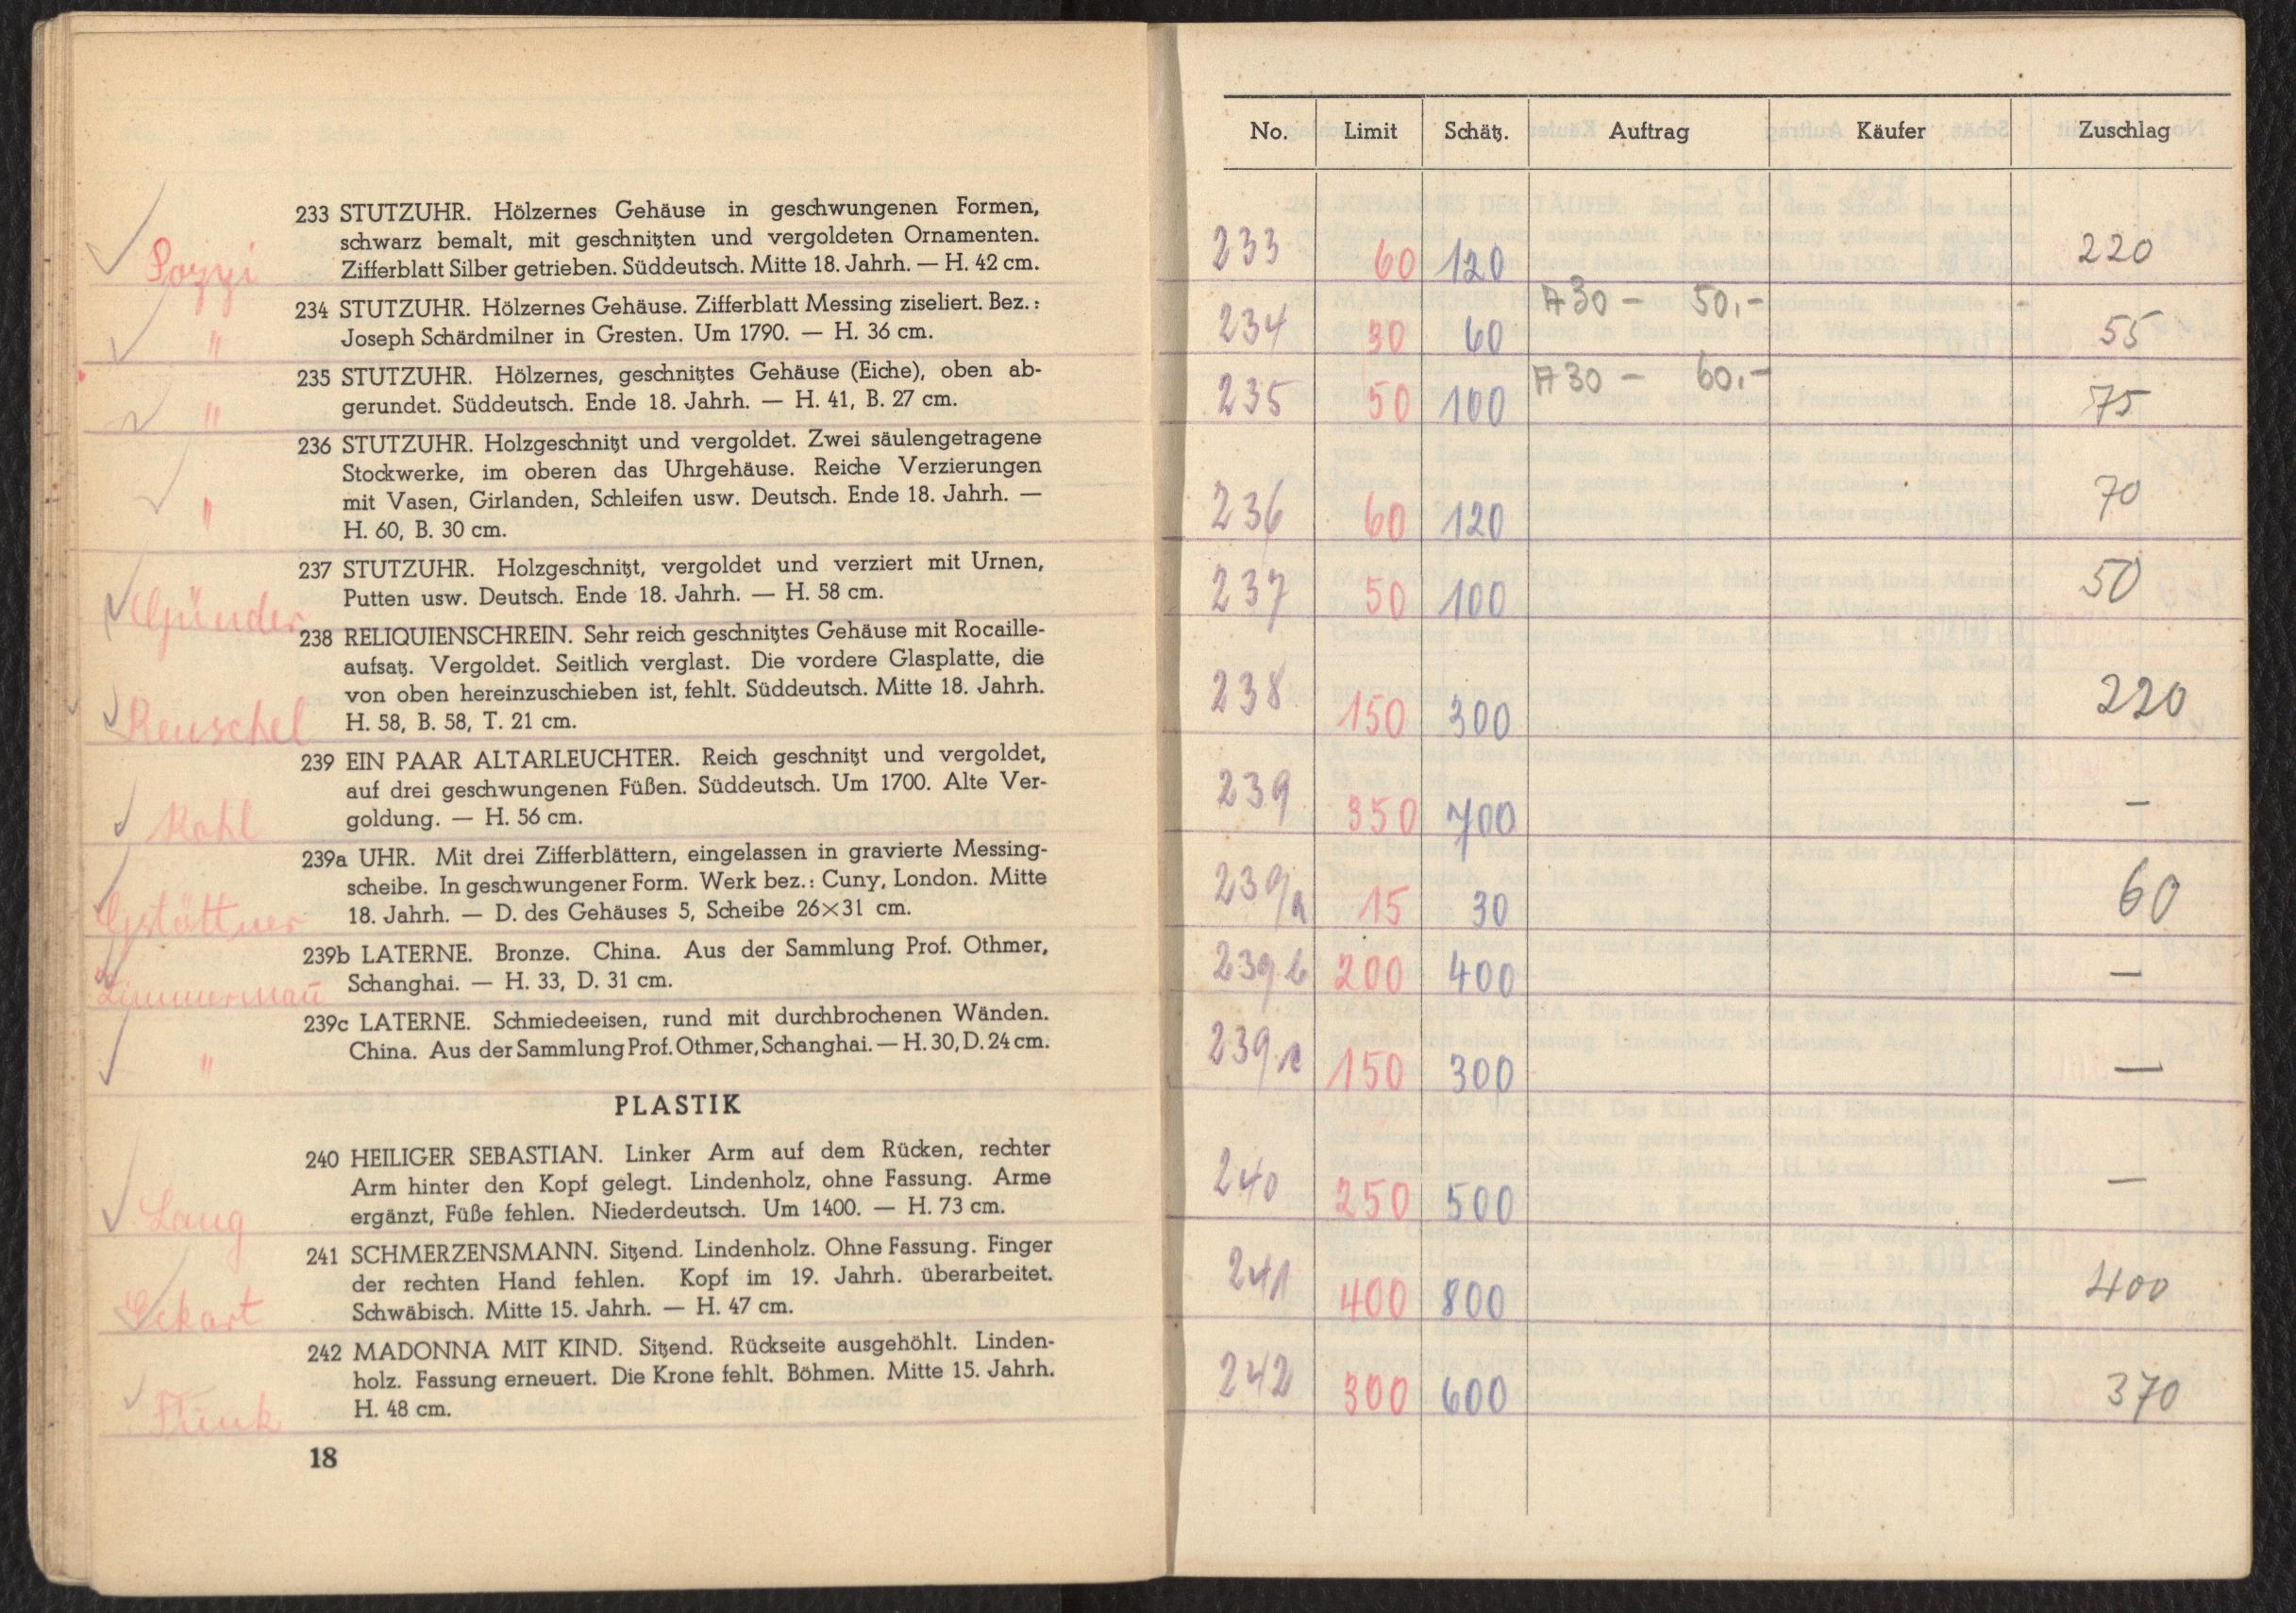 233 STUTZUHR. Hölzernes Gehäuse in geschwungenen Formen,
schwarz bemalt, mit geschnitzten und vergoldeten Ornamenten.
Zifferblatt Silber getrieben. Süddeutsch. Mitte 18. Jahrh. — H. 42 cm.
Pozzi
234 STUTZUHR. Hölzernes Gehäuse. Zifferblatt Messing ziseliert. Bez.:
Joseph Schärdmilner in Gresten. Um 1790. — H. 36 cm.
"
235 STUTZUHR. Hölzernes, geschnitztes Gehäuse (Eiche), oben ab-
gerundet. Süddeutsch. Ende 18. Jahrh. — H. 41, B. 27 cm.
"
236 STUTZUHR. Holzgeschnitzt und vergoldet. Zwei säulengetragene
Stockwerke, im oberen das Uhrgehäuse. Reiche Verzierungen
mit Vasen, Girlanden, Schleifen usw. Deutsch. Ende 18. Jahrh. —
H. 60, B. 30 cm.
"
237 STUTZUHR. Holzgeschnitzt, vergoldet und verziert mit Urnen,
Putten usw. Deutsch. Ende 18. Jahrh. — H. 58 cm.
Gründer
238 RELIQUIENSCHREIN. Sehr reich geschnitztes Gehäuse mit Rocaille-
aufsatz. Vergoldet. Seitlich verglast. Die vordere Glasplatte, die
von oben hereinzuschieben ist, fehlt. Süddeutsch. Mitte 18. Jahrh.
H. 58, B. 58, T. 21 cm.
Reuschel
239 EIN PAAR ALTARLEUCHTER. Reich geschnitzt und vergoldet,
auf drei geschwungenen Füßen. Süddeutsch. Um 1700. Alte Ver-
goldung. — H. 56 cm.
Kohl
239a UHR. Mit drei Zifferblättern, eingelassen in gravierte Messing-
scheibe. In geschwungener Form. Werk bez.: Cuny, London. Mitte
18. Jahrh. — D. des Gehäuses 5, Scheibe 26×31 cm.
Gstöttner
239b LATERNE. Bronze. China. Aus der Sammlung Prof. Othmer,
Schanghai. — H. 33, D. 31 cm.
Zimmermañ
239c LATERNE. Schmiedeeisen, rund mit durchbrochenen Wänden.
China. Aus der Sammlung Prof. Othmer, Schanghai. — H. 30, D. 24 cm.
"
PLASTIK
240 HEILIGER SEBASTIAN. Linker Arm auf dem Rücken, rechter
Arm hinter den Kopf gelegt. Lindenholz, ohne Fassung. Arme
ergänzt, Füße fehlen. Niederdeutsch. Um 1400. — H. 73 cm.
Lang
241 SCHMERZENSMANN. Sitzend. Lindenholz. Ohne Fassung. Finger
der rechten Hand fehlen. Kopf im 19. Jahrh. überarbeitet.
Schwäbisch. Mitte 15. Jahrh. — H. 47 cm.
Eckart
242 MADONNA MIT KIND. Sitzend. Rückseite ausgehöhlt. Linden-
holz. Fassung erneuert. Die Krone fehlt. Böhmen. Mitte 15. Jahrh.
H. 48 cm.
Funk
18
No. Limit Schätz. Auftrag Käufer Zuschlag
233 60 120 220
234 30 60 A 30 — 50,- 55
235 50 100 A 30 — 60,- 75
236 60 120 70
237 50 100 50
238 150 300 220
239 350 700 —
239/a 15 30 60
239 b 200 400 —
239 c 150 300 —
240 250 500 —
241 400 800 400
242 300 600 370